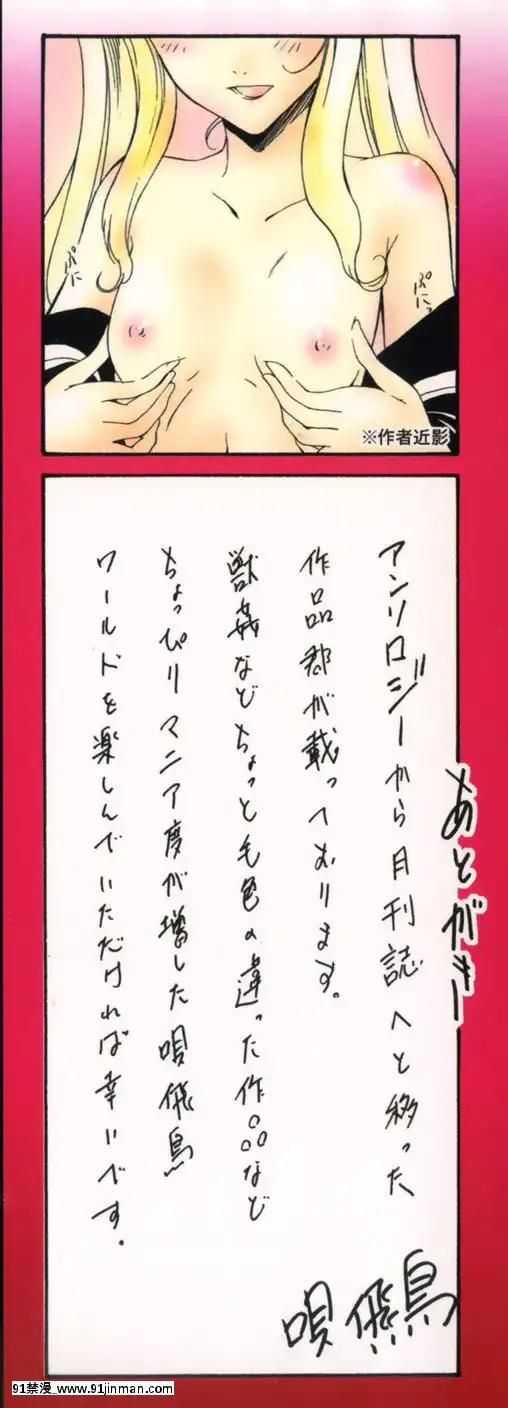 ぷに
ぷにっ
※作者近影
あとがきー
アンソロジーから月刊誌へと移った
作品郡が載っております。
獣姦などちょっと毛色の違った作品など
ちょっぴりマニア度が増した唄飛鳥
ワールドを楽しんでいただければ幸いです。
唄飛鳥
91禁漫_www.91jinman.com